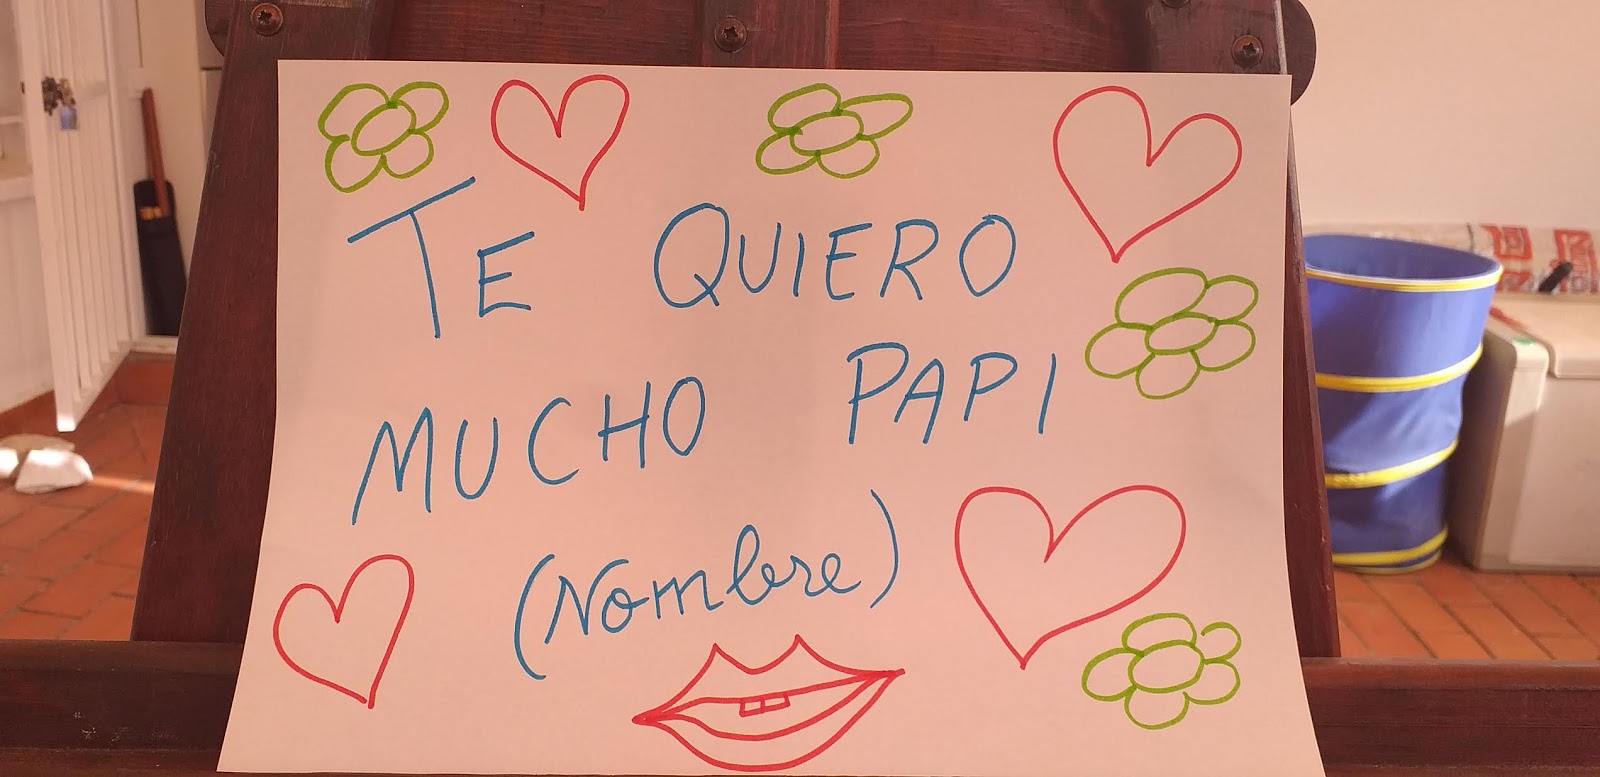 TE QUIERO
MUCHO PAPI
(Nombre)